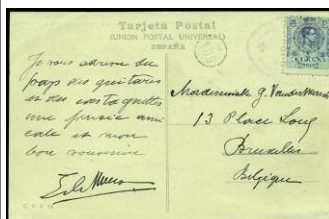 Tarjeta Postal
(UNION POSTAL UNIVERSAL)
ESPAÑA
Je vous adresse du
pays des guitares
et des castagnettes
une pensée ami
cale et mon
bon souvenir
Mademoiselle G.
13 Place
Bruxelles
Belgique